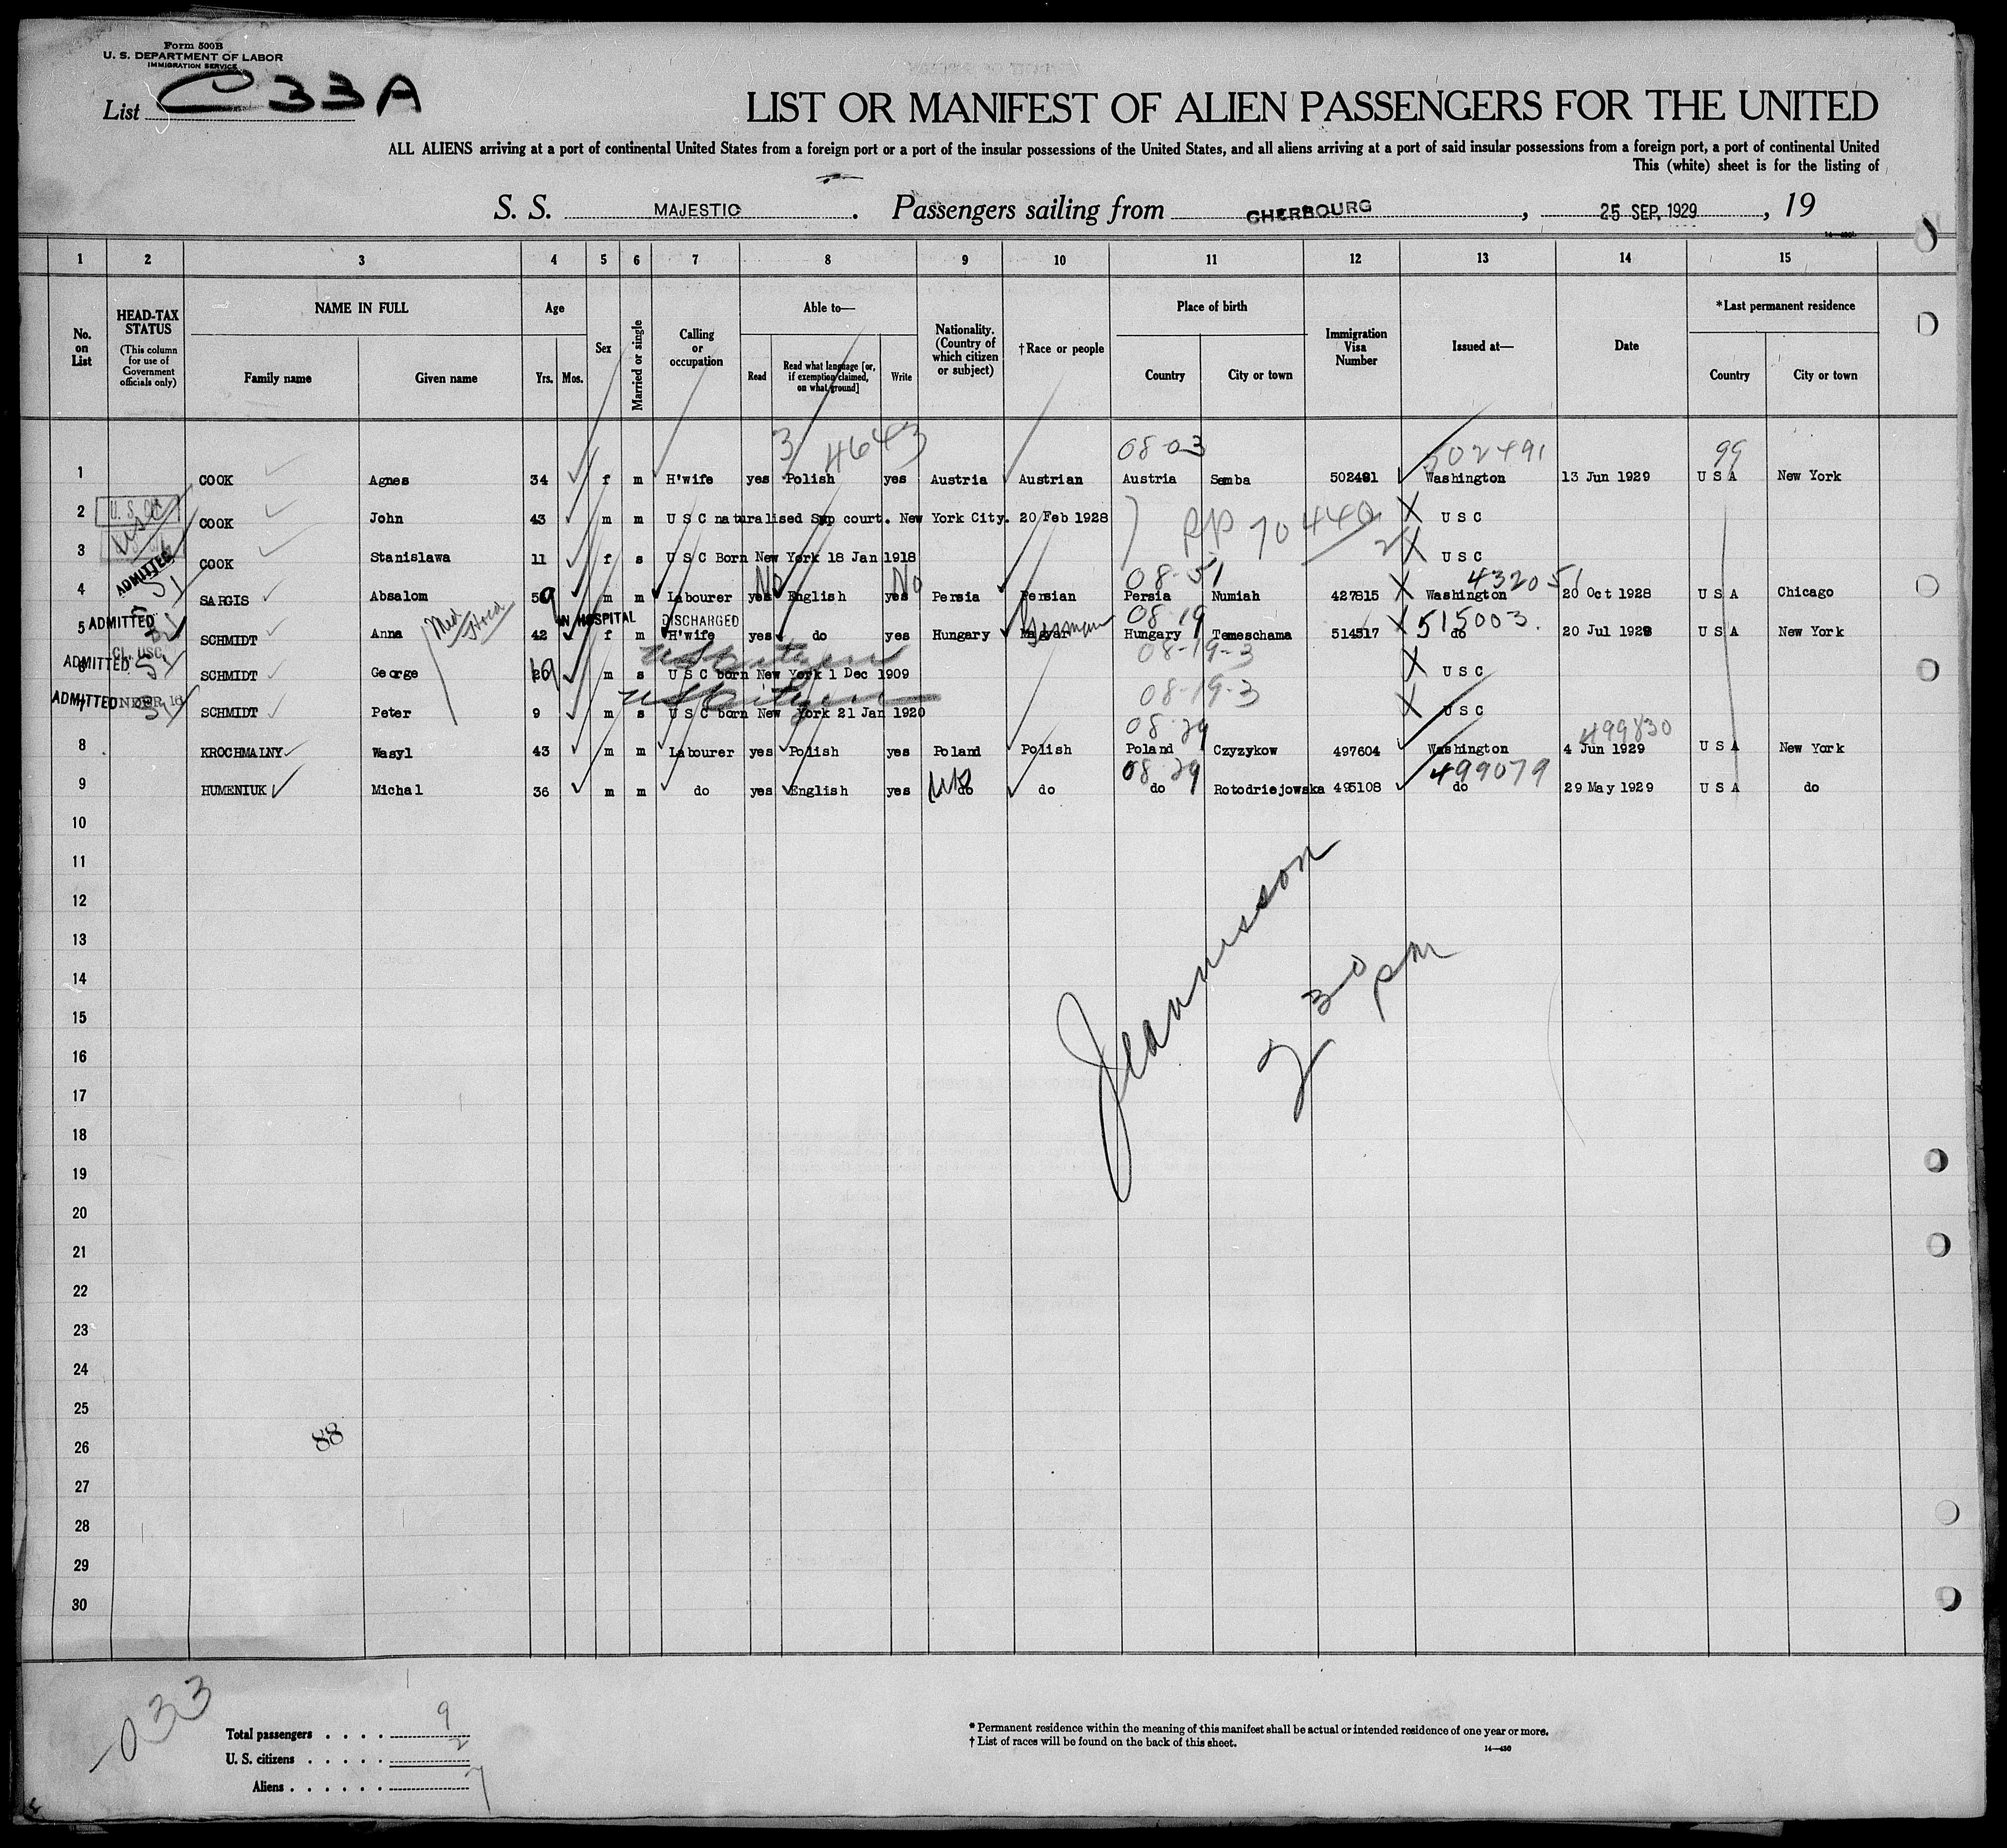 Form 500B
U. S. DEPARTMENT OF LABOR
IMMIGRATION SERVICE
List C 33 A
LIST OR MANIFEST OF ALIEN PASSENGERS FOR THE UNITED
ALL ALIENS arriving at a port of continental United States from a foreign port or a port of the insular possessions of the United States, and all aliens arriving at a port of said insular possessions from a foreign port, a port of continental United
This (white) sheet is for the listing of
S. S. MAJESTIC. Passengers sailing from CHERBOURG, 25 SEP, 1929, 19
1 2 3 4 5 6 7 8 9 10 11 12 13 14 15
No. on List
HEAD-TAX STATUS (This column for use of Government officials only)
NAME IN FULL Family name Given name
Age Yrs. Mos.
Sex
Married or single
Calling or occupation
Able to— Read Read what language [or, if exemption claimed, on what ground] Write
Nationality. (Country of which citizen or subject)
†Race or people
Place of birth Country City or town
Immigration Visa Number
Issued at—
Date
*Last permanent residence Country City or town
3 4643 08-03 502491 99
1 COOK Agnes 34 f m H'wife yes Polish yes Austria Austrian Austria Samba 502491 Washington 13 Jun 1929 U S A New York
2 COOK John 43 m m U S C naturalised Sup court. New York City. 20 Feb 1928 U S C
RP 70440
3 COOK Stanislawa 11 f s U S C Born New York 18 Jan 1918 U S C
ADMITTED No No 08-51 432051
4 SARGIS Absalom 59 m m Labourer yes English yes Persia Persian Persia Numiah 427815 Washington 20 Oct 1928 U S A Chicago
ADMITTED IN HOSPITAL DISCHARGED German 08-19 515003
5 SCHMIDT Anna 42 f m H'wife yes do yes Hungary Magyar Hungary Temeschama 514517 do 20 Jul 1929 U S A New York
ADMITTED US Citizen 08-19-3
6 SCHMIDT George 19 m s U S C born New York 1 Dec 1909 U S C
ADMITTED UNDER 16 US Citizen 08-19-3
7 SCHMIDT Peter 9 m s U S C born New York 21 Jan 1920 U S C
08-29 499830
8 KROCHMALNY Wasyl 43 m m Labourer yes Polish yes Poland Polish Poland Czyzykow 497604 Washington 4 Jun 1929 U S A New York
08-29 499079
9 HUMENIUK Michal 36 m m do yes English yes do do do Rotodriejowska 495108 do 29 May 1929 U S A do
10
11
12
13
14
15
16
17
18
19
20
21
22
23
24
25
26
27
28
29
30
2 30 pm
88
-033
Total passengers . . . . 9
U. S. citizens . . . . . 2
Aliens . . . . . . 7
* Permanent residence within the meaning of this manifest shall be actual or intended residence of one year or more.
† List of races will be found on the back of this sheet.
14—430